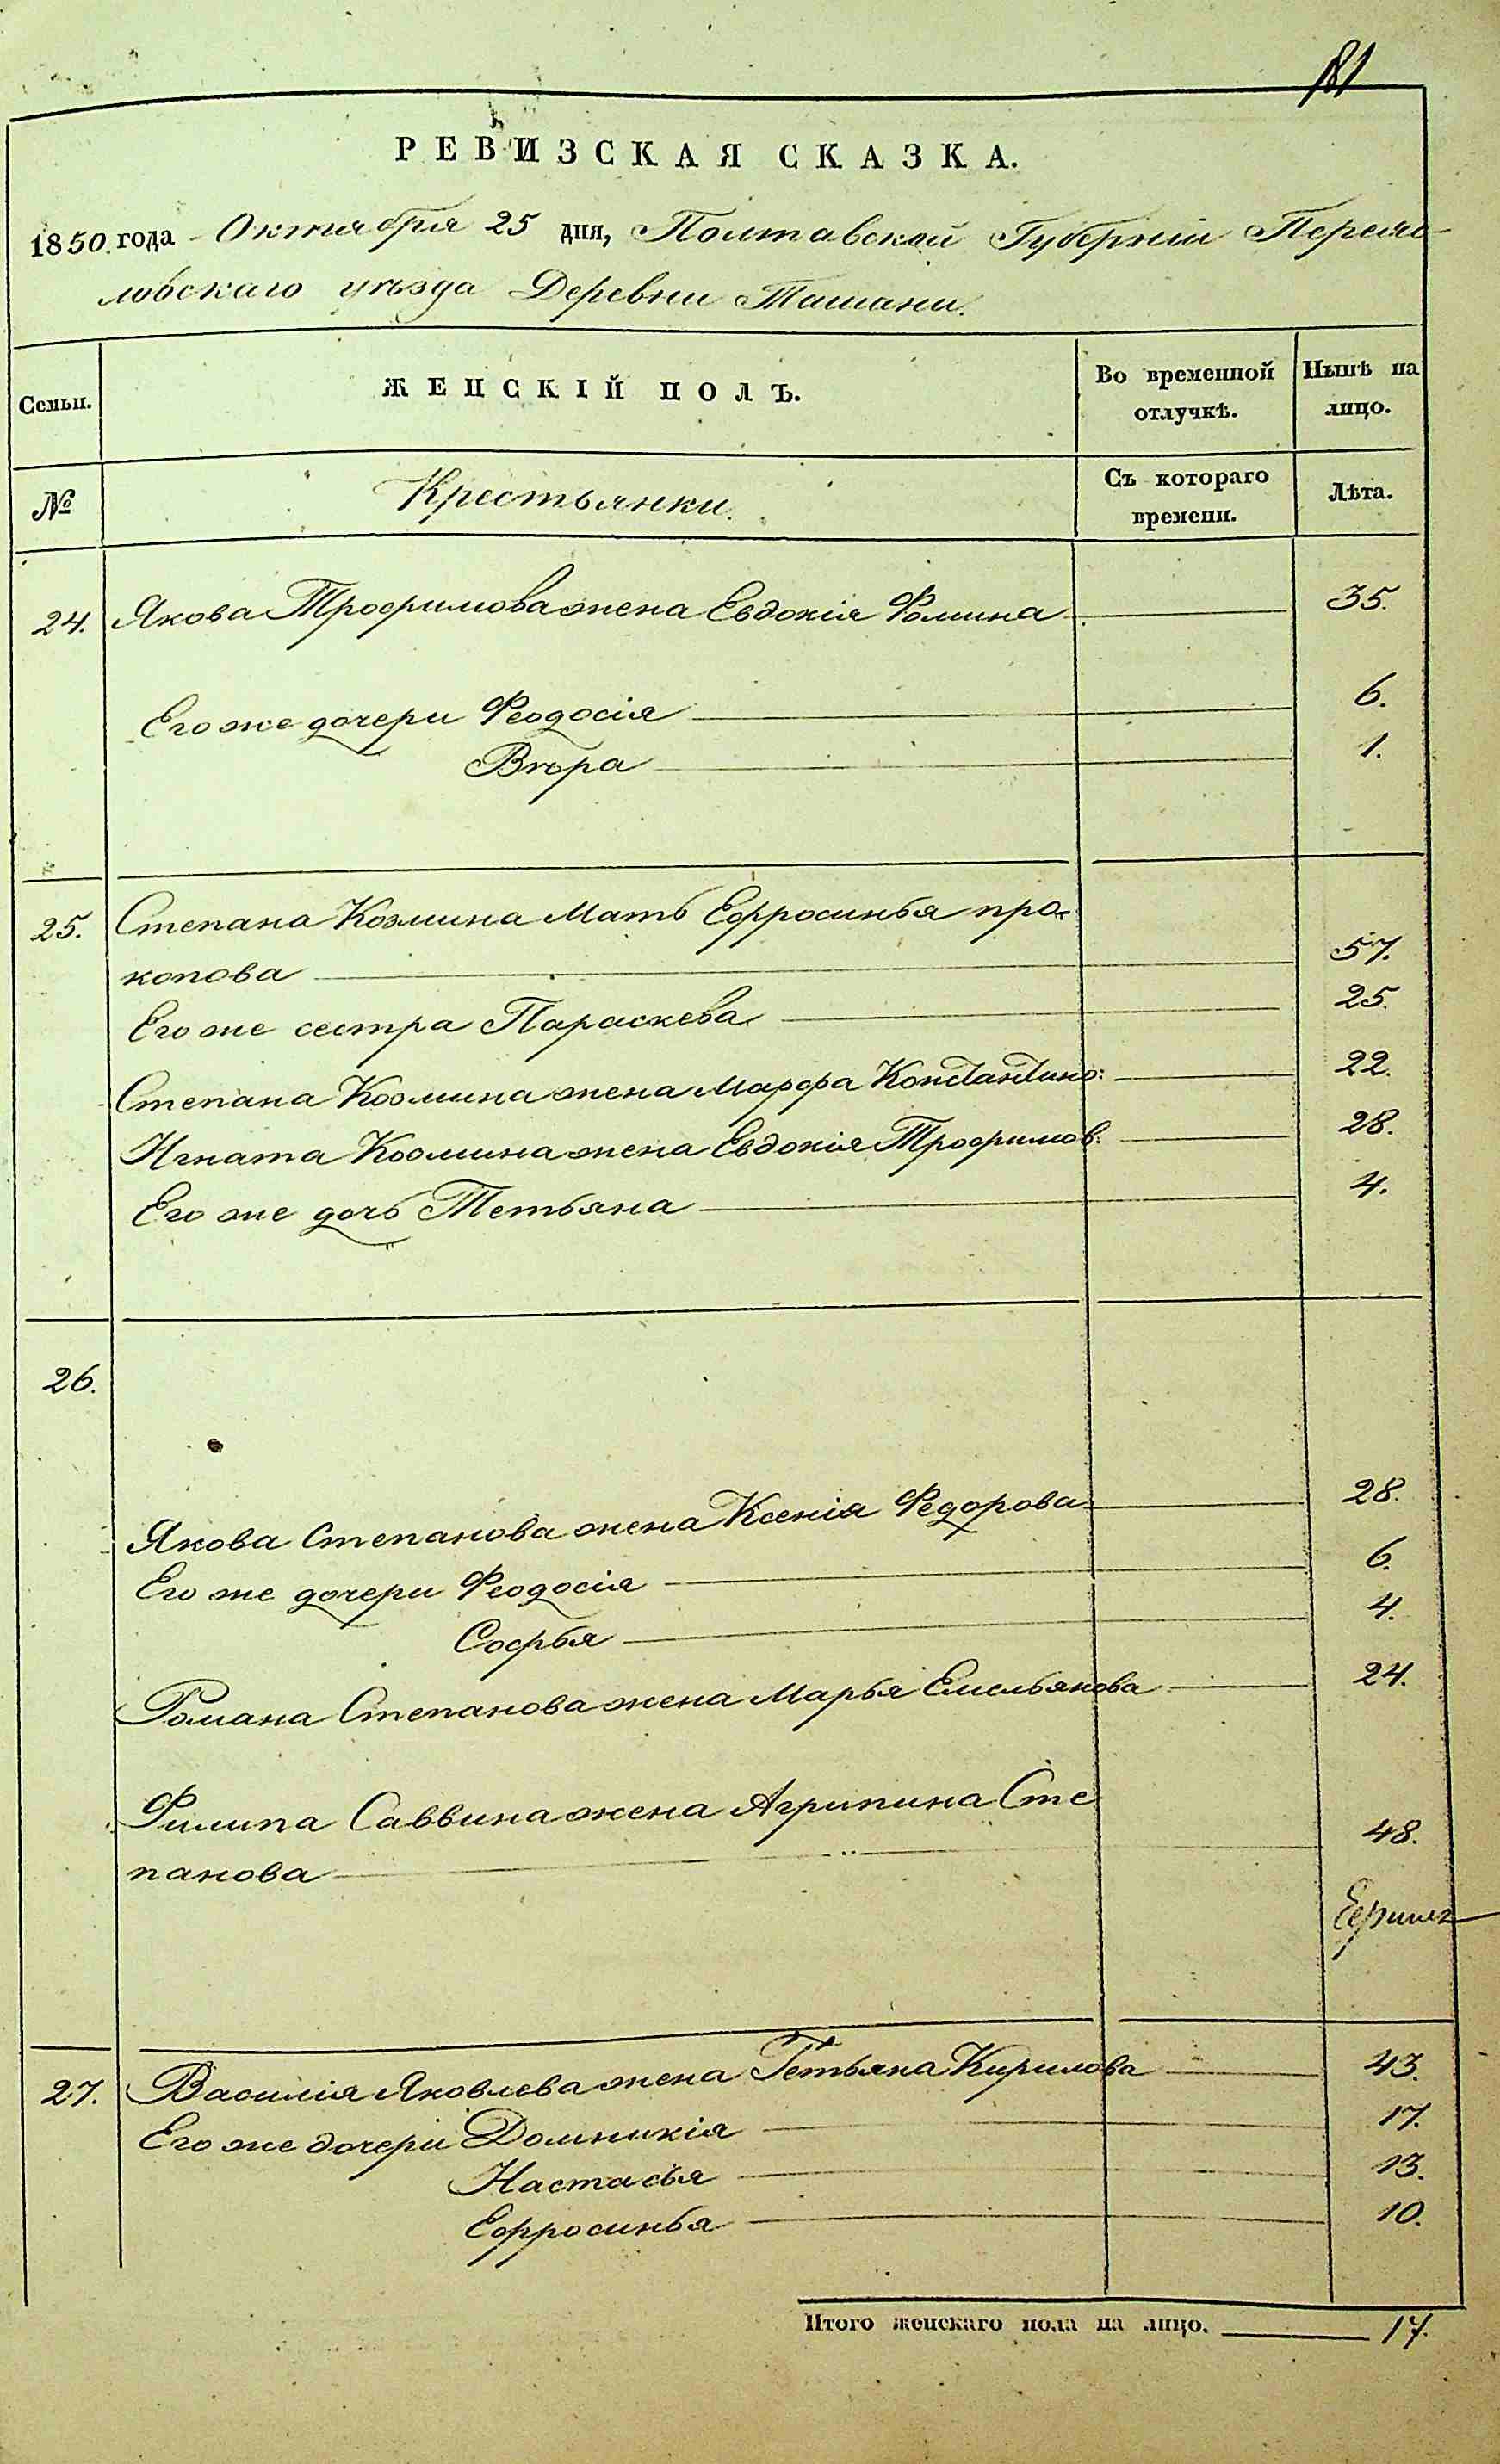 181
РЕВИЗСКАЯ СКАЗКА.
1850 года Октября 25 дня, Полтавской Губерніи Переяс-
ловскаго уѣзда Деревни Ташани.
Семьи.
ЖЕНСКІЙ ПОЛЪ.
Во временной отлучкѣ.
Нынѣ на лицо.
№
Крестьянки.
Съ котораго времени.
Лѣта.
24. Якова Трофимова жена Евдокія Фомина 35.
Его же дочери Феодосія 6.
Вѣра 1.
25. Степана Козмина Мать Ефросинья про-
копова 57.
Его же сестра Параскева 25.
Степана Козмина жена Марфа Константино: 22.
Игната Козмина жена Евдокія Трофимов: 28.
Его же дочь Тетьяна 4.
26.
Якова Степанова жена Ксенія Федорова 28.
Его же дочери Феодосія 6.
Софья 4.
Романа Степанова жена Марья Емельянова 24.
Филипа Саввина жена Агрипина Сте
панова 48.
27. Василія Яковлева жена Тетьяна Кирилова 43.
Его же дочери Домникія 17.
Настасья 13.
Ефросинья 10.
Итого женскаго пола на лицо. 17.